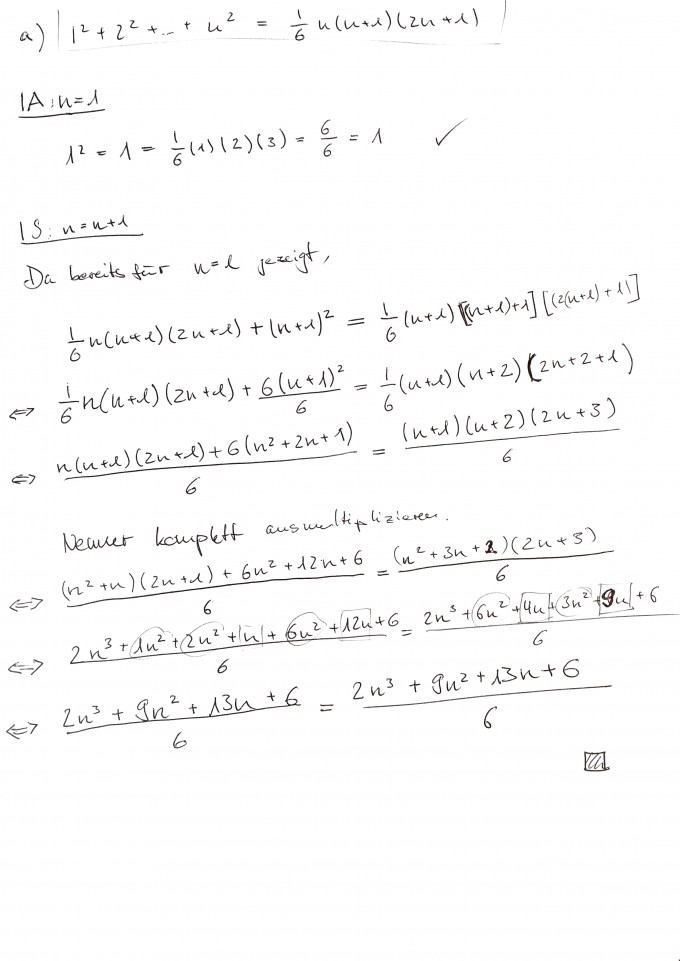 a) 1² + 2² + ... + n² = 1/6 n(n+1)(2n+1)
IA: n=1
1² = 1 = 1/6 (1)(2)(3) = 6/6 = 1 ✓
IS: n=n+1
Da bereits für n=1 gezeigt,
1/6 n(n+1)(2n+1) + (n+1)² = 1/6 (n+1)[(n+1)+1][(2(n+1)+1)]
⇔ 1/6 n(n+1)(2n+1) + 6(n+1)²/6 = 1/6 (n+1)(n+2)(2n+2+1)
⇔ n(n+1)(2n+1)+6(n²+2n+1)/6 = (n+1)(n+2)(2n+3)/6
Nenner komplett ausmultiplizieren.
⇔ (n²+n)(2n+1)+6n²+12n+6/6 = (n²+3n+2)(2n+3)/6
⇔ 2n³+1n²+2n²+n+6n²+12n+6/6 = 2n³+6n²+4n+3n²+9n+6/6
⇔ 2n³+9n²+13n+6/6 = 2n³+9n²+13n+6/6